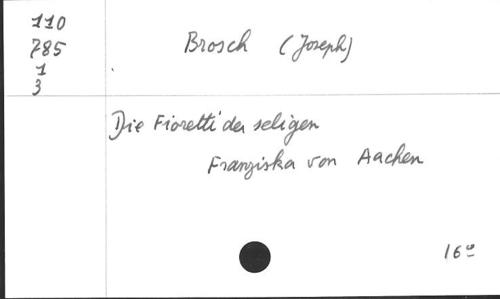 110
785
1
3
Brosch (Joseph)
Die Fioretti der seligen
Franziska von Aachen
16°